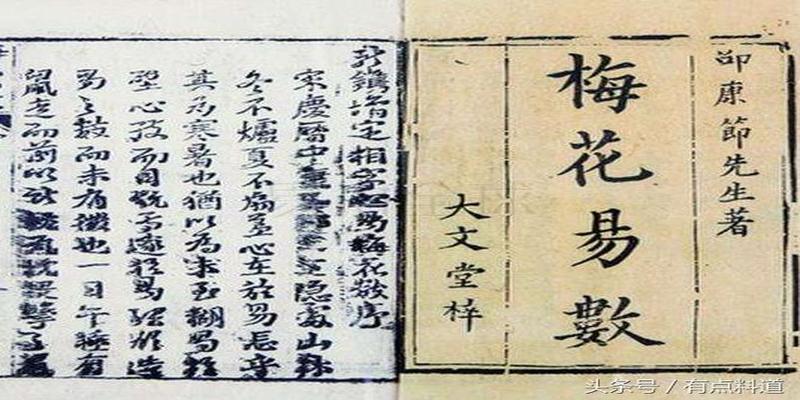 邵康節先生著
梅花易數
大文堂梓
相字心易梅花數序
宋慶曆中隱處山林
冬不爐夏不扇蓋心在於易忘乎
其為寒暑也猶以為未至糊易於
壁心致而目玩焉邃於易理欲造
易之數而未有徵也一日午睡有
鼠走而前以所枕瓦枕投擊之
头条号 / 有点料道